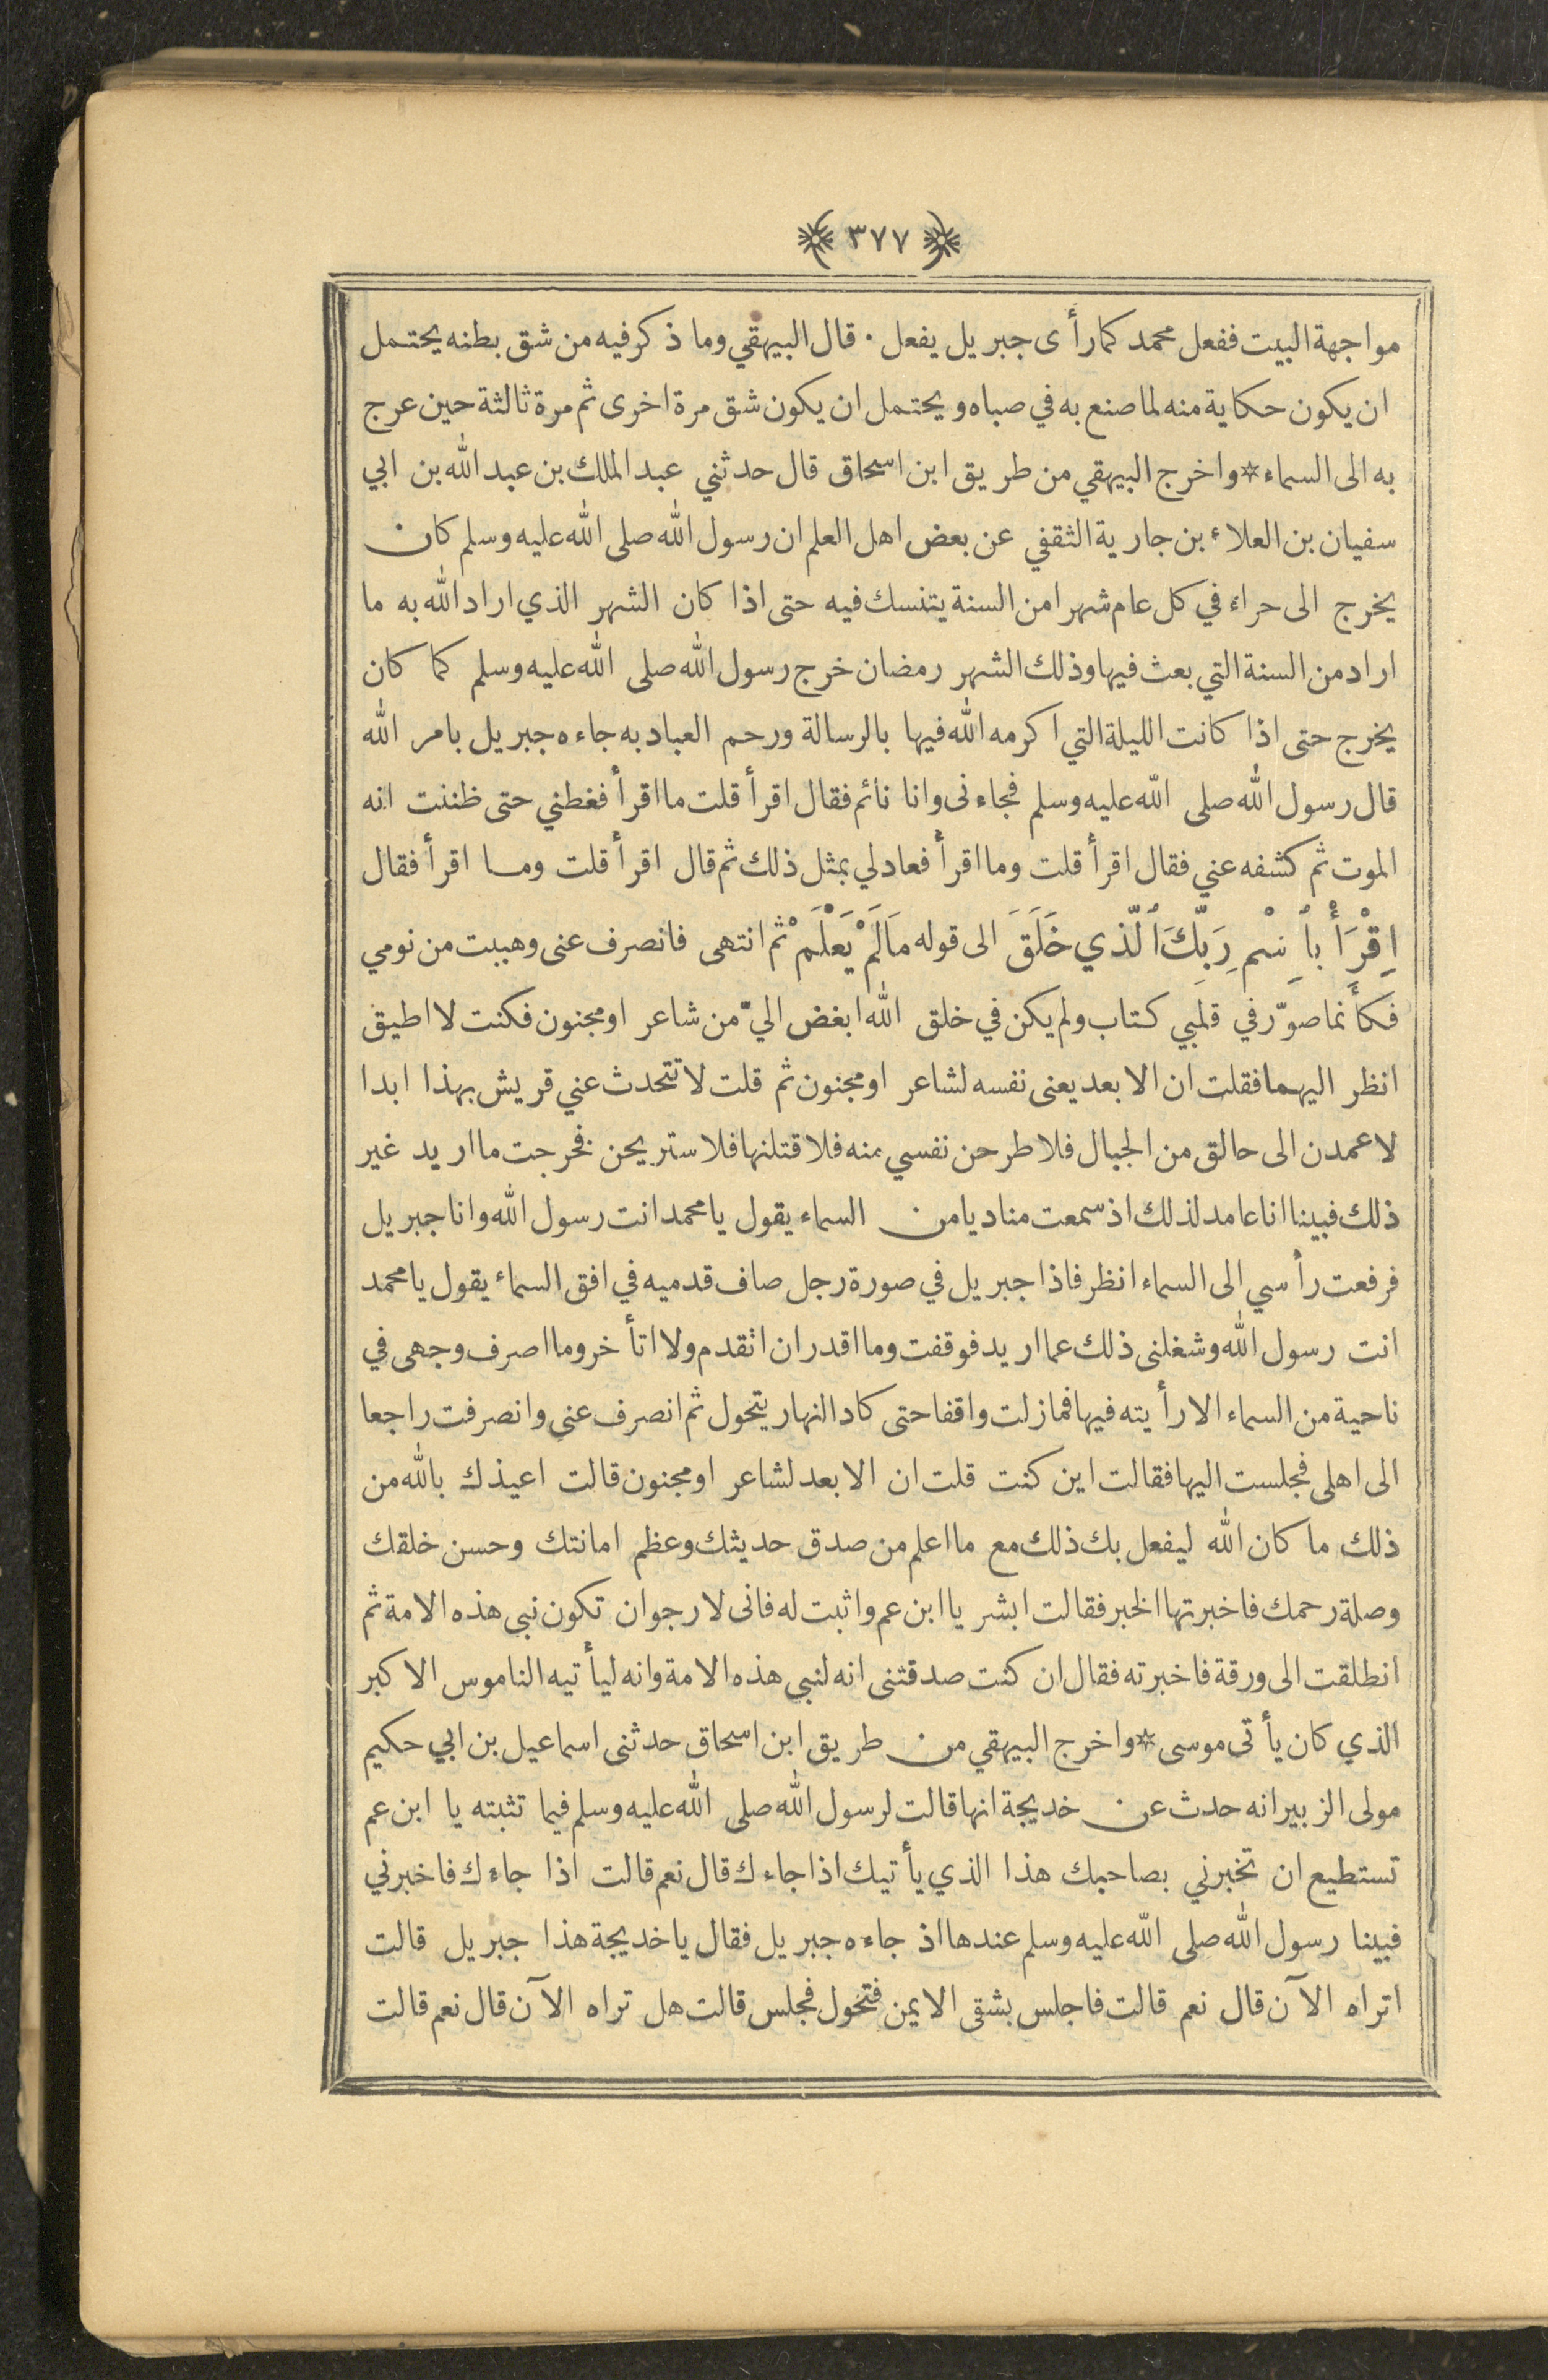 ٣٧٧
مواجهة البيت ففعل محمد كما رأى جبريل يفعل · قال البيهقي وما ذكر فيه من شق بطنه يحتمل
ان يكون حكاية منه لما صنع به في صباه ويحتمل ان يكون شق مرة اخرى ثم مرة ثالثة حين عرج
به الى السماء * واخرج البيهقي من طريق ابن اسحاق قال حدثني عبد الملك بن عبد الله بن ابي
سفيان بن العلاء بن جارية الثقفي عن بعض اهل العلم ان رسول الله صلى الله عليه وسلم كان
يخرج الى حراء في كل عام شهرا من السنة يتنسك فيه حتى اذا كان الشهر الذي اراد الله به ما
اراد من السنة التي بعث فيها وذلك الشهر رمضان خرج رسول الله صلى الله عليه وسلم كما كان
يخرج حتى اذا كانت الليلة التي اكرمه الله فيها بالرسالة ورحم العباد به جاءه جبريل بامر الله
قال رسول الله صلى الله عليه وسلم فجاءنى وانا نائم فقال اقرأ قلت ما اقرأ فغطني حتى ظننت انه
الموت ثم كشفه عني فقال اقرأ قلت وما اقرأ فعاد لي بمثل ذلك ثم قال اقرأ قلت وما اقرأ فقال
اِقْرَأْ بِاسْمِ رَبِّكَ ٱلَّذي خَلَقَ الى قوله مَا لَمْ يَعْلَمْ ثم انتهى فانصرف عنى وهببت من نومي
فكأنما صوّر في قلبي كتاب ولم يكن في خلق الله ابغض اليّ من شاعر او مجنون فكنت لا اطيق
انظر اليهما فقلت ان الابعد يعنى نفسه لشاعر او مجنون ثم قلت لا تتحدث عني قريش بهذا ابدا
لاعمدن الى حالق من الجبال فلاطرحن نفسي منه فلاقتلنها فلاستريحن فخرجت ما اريد غير
ذلك فبينا انا عامد لذلك اذ سمعت مناديا من السماء يقول يا محمد انت رسول الله وانا جبريل
فرفعت رأسي الى السماء انظر فاذا جبريل في صورة رجل صاف قدميه في افق السماء يقول يا محمد
انت رسول الله وشغلنى ذلك عما اريد فوقفت وما اقدر ان اتقدم ولا اتأخر وما اصرف وجهى في
ناحية من السماء الا رأيته فيها فما زلت واقفا حتى كاد النهار يتحول ثم انصرف عني وانصرفت راجعا
الى اهلى فجلست اليها فقالت اين كنت قلت ان الابعد لشاعر او مجنون قالت اعيذك بالله من
ذلك ما كان الله ليفعل بك ذلك مع ما اعلم من صدق حديثك وعظم امانتك وحسن خلقك
وصلة رحمك فاخبرتها الخبر فقالت ابشر يا ابن عم واثبت له فانى لارجو ان تكون نبي هذه الامة ثم
انطلقت الى ورقة فاخبرته فقال ان كنت صدقتنى انه لنبي هذه الامة وانه ليأتيه الناموس الاكبر
الذي كان يأتى موسى * واخرج البيهقي من طريق ابن اسحاق حدثنى اسماعيل بن ابي حكيم
مولى الزبير انه حدث عن خديجة انها قالت لرسول الله صلى الله عليه وسلم فيما تثبته يا ابن عم
تستطيع ان تخبرني بصاحبك هذا الذي يأتيك اذا جاءك قال نعم قالت اذا جاءك فاخبرني
فبينا رسول الله صلى الله عليه وسلم عندها اذ جاءه جبريل فقال يا خديجة هذا جبريل قالت
اتراه الآن قال نعم قالت فاجلس بشقى الايمن فتحول فجلس قالت هل تراه الآن قال نعم قالت